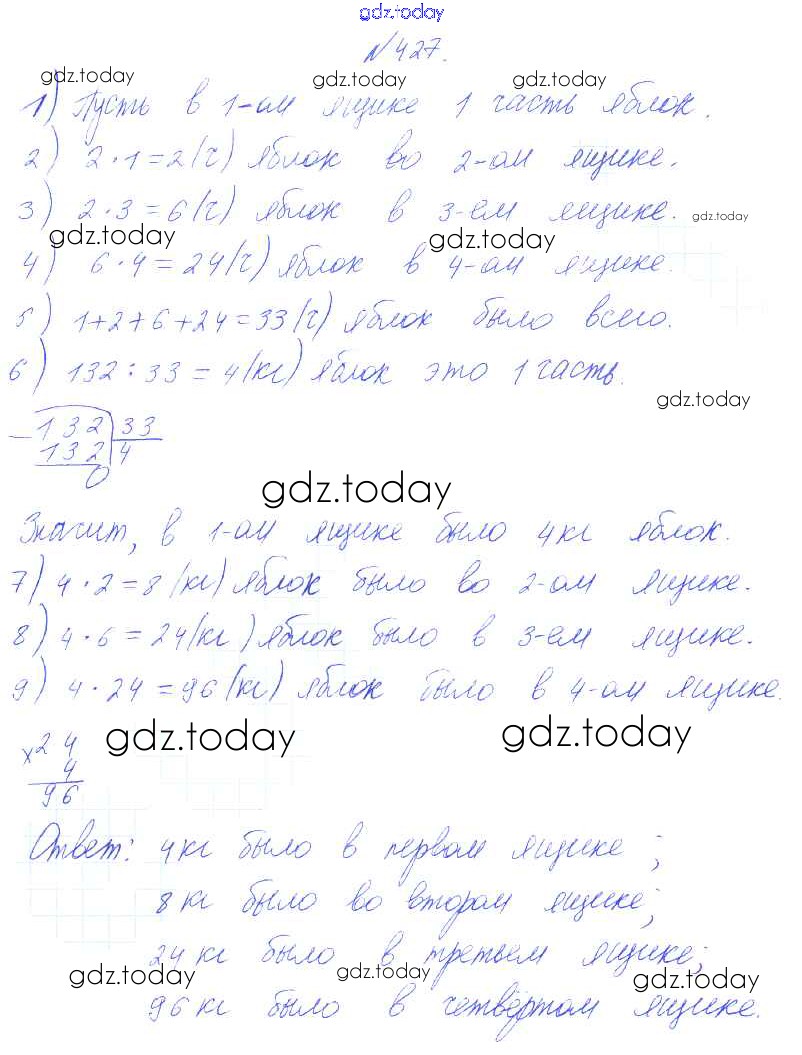 gdz.today
№427.
gdz.today gdz.today gdz.today
1) Пусть в 1-ом ящике 1 часть яблок.
2) 2·1=2(ч) яблок во 2-ом ящике.
3) 2·3=6(ч) яблок в 3-ем ящике. gdz.today
gdz.today gdz.today
4) 6·4=24(ч) яблок в 4-ом ящике.
5) 1+2+6+24=33(ч) яблок было всего.
6) 132:33=4(кг) яблок это 1 часть.
gdz.today
-132 33
132 4
0
gdz.today
Значит, в 1-ом ящике было 4кг яблок.
7) 4·2=8(кг) яблок было во 2-ом ящике.
8) 4·6=24(кг) яблок было в 3-ем ящике.
9) 4·24=96(кг) яблок было в 4-ом ящике.
gdz.today gdz.today
×24
4
96
Ответ: 4кг было в первом ящике;
8кг было во втором ящике;
24кг было в третьем ящике;
gdz.today gdz.today gdz.today
96кг было в четвёртом ящике.